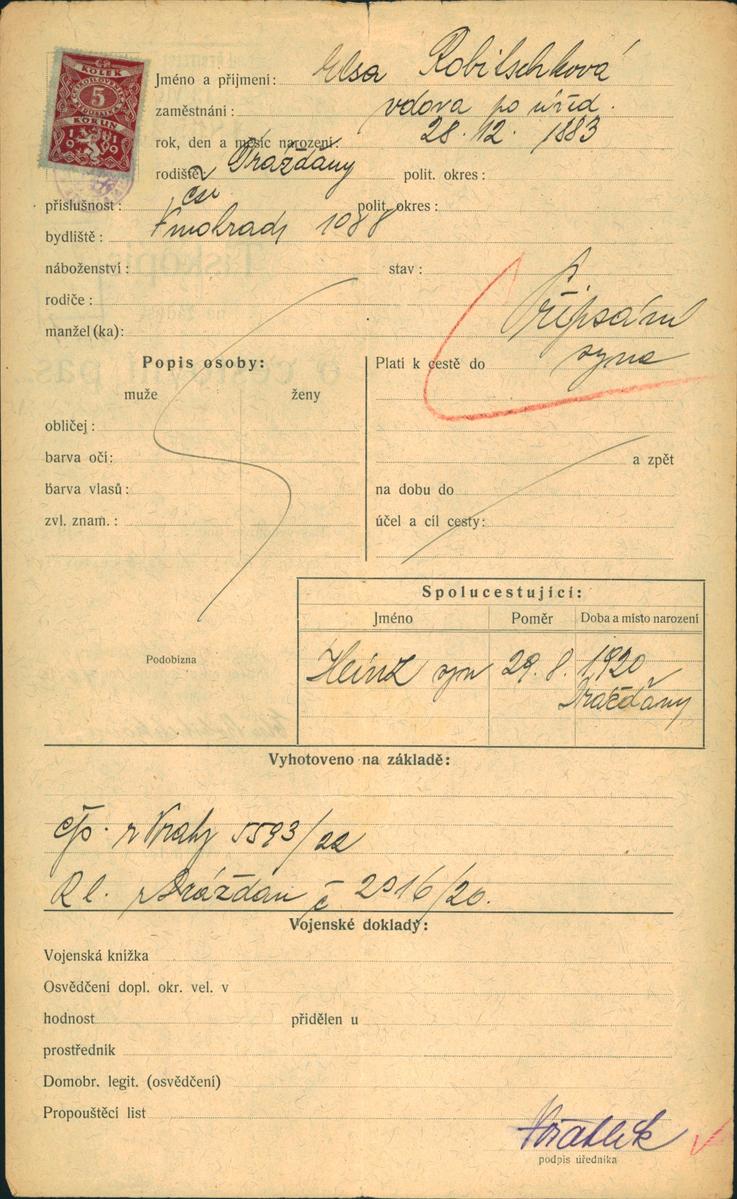 KOLEK
5
KORUN
1919
Jméno a příjmení: Elsa Robitschková
zaměstnání: vdova po úřed.
rok, den a měsíc narození: 28. 12. 1883
rodiště: Drážďany polit. okres:
příslušnost: čsl polit. okres:
bydliště: 1088
náboženství: stav:
rodiče:
manžel(ka):
Připsání
syna
Popis osoby:
Platí k cestě do
muže ženy
obličej:
barva očí:
a zpět
barva vlasů:
na dobu do
zvl. znam.:
účel a cíl cesty:
Spolucestující:
Jméno Poměr Doba a místo narození
Heinz syn 29. 8. 1920
Drážďany
Podobizna
Vyhotoveno na základě:
čp. z Prahy 5593/22
R l. z Drážďan č 2016/20.
Vojenské doklady:
Vojenská knížka
Osvědčení dopl. okr. vel. v
hodnost přidělen u
prostředník
Domobr. legit. (osvědčení)
Propouštěcí list
podpis úředníka